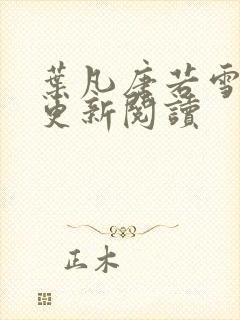 葉凡唐若雪
更新閱讀
正木